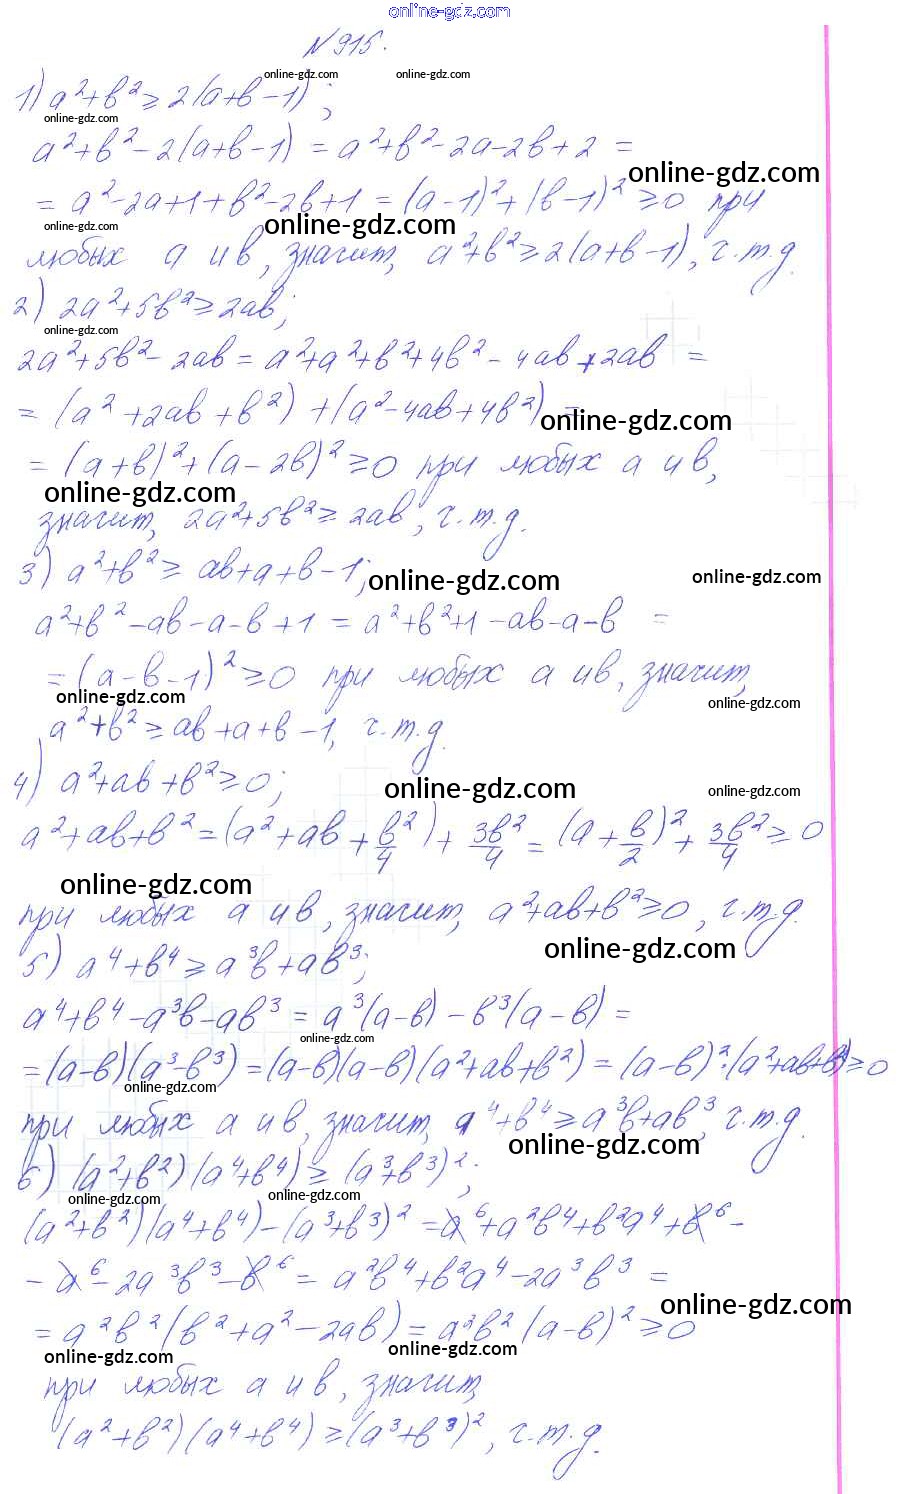 online-gdz.com
№915.
online-gdz.com online-gdz.com
1) a²+b² ≥ 2(a+b-1);
online-gdz.com
a²+b²-2(a+b-1) = a²+b²-2a-2b+2 =
online-gdz.com
= a²-2a+1+b²-2b+1 = (a-1)²+(b-1)² ≥0 при
online-gdz.com online-gdz.com
любых a и b, значит, a²+b² ≥ 2(a+b-1), ч.т.д.
2) 2a²+5b² ≥ 2ab;
online-gdz.com
2a²+5b²-2ab = a²+a²+b²+4b²-4ab+2ab =
= (a²+2ab+b²)+(a²-4ab+4b²) =
online-gdz.com
= (a+b)²+(a-2b)² ≥0 при любых a и b,
online-gdz.com
значит, 2a²+5b² ≥ 2ab, ч.т.д.
3) a²+b² ≥ ab+a+b-1;
online-gdz.com online-gdz.com
a²+b²-ab-a-b+1 = a²+b²+1-ab-a-b =
= (a-b-1)² ≥0 при любых a и b, значит,
online-gdz.com online-gdz.com
a²+b² ≥ ab+a+b-1, ч.т.д.
4) a²+ab+b² ≥0;
online-gdz.com online-gdz.com
a²+ab+b² = (a²+ab+b²/4)+3b²/4 = (a+b/2)²+3b²/4 ≥ 0
online-gdz.com
при любых a и b, значит, a²+ab+b² ≥0, ч.т.д.
online-gdz.com
5) a⁴+b⁴ ≥ a³b+ab³;
a⁴+b⁴-a³b-ab³ = a³(a-b)-b³(a-b) =
online-gdz.com
= (a-b)(a³-b³) = (a-b)(a-b)(a²+ab+b²) = (a-b)²·(a²+ab+b²) ≥0
online-gdz.com
при любых a и b, значит, a⁴+b⁴ ≥ a³b+ab³, ч.т.д.
online-gdz.com
6) (a²+b²)(a⁴+b⁴) ≥ (a³+b³)²;
online-gdz.com online-gdz.com
(a²+b²)(a⁴+b⁴)-(a³+b³)² = a⁶+a²b⁴+b²a⁴+b⁶-
-a⁶-2a³b³-b⁶ = a²b⁴+b²a⁴-2a³b³ =
online-gdz.com
= a²b²(b²+a²-2ab) = a²b²(a-b)² ≥0
online-gdz.com online-gdz.com
при любых a и b, значит,
(a²+b²)(a⁴+b⁴) ≥ (a³+b³)², ч.т.д.